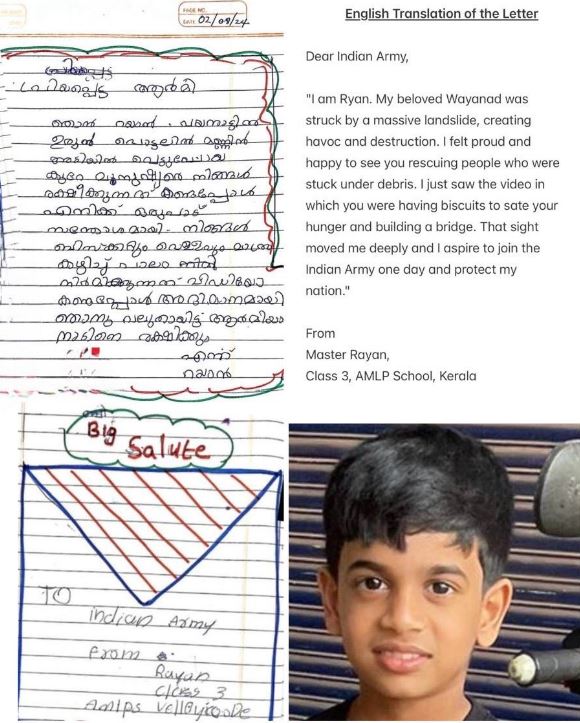 PAGE NO.
DATE 02/08/24
പ്രിയപ്പെട്ട ആർമി
ഞാൻ റയാൻ. വയനാട്ടിൽ
ഉരുൾ പൊട്ടലിൽ മണ്ണിൻ
അടിയിൽ പെട്ടുപോയ
കുറേ മനുഷ്യരെ നിങ്ങൾ
രക്ഷിക്കുന്നത് കണ്ടപ്പോൾ
എനിക്ക് ഒരുപാട്
സന്തോശമായി. നിങ്ങൾ
ബിസ്ക്കറ്റും വെള്ളവും മാത്രം
കഴിച്ച് പാലം
നിർമിക്കുന്നത് വിഡിയോ
കണ്ടപ്പോൾ അഭിമാനമായി
ഞാനു വലുതായിട്ട് ആർമിയാ
നാടിനെ രക്ഷിക്കും
എന്ന്
റയാൻ
English Translation of the Letter
Dear Indian Army,
"I am Ryan. My beloved Wayanad was
struck by a massive landslide, creating
havoc and destruction. I felt proud and
happy to see you rescuing people who were
stuck under debris. I just saw the video in
which you were having biscuits to sate your
hunger and building a bridge. That sight
moved me deeply and I aspire to join the
Indian Army one day and protect my
nation."
From
Master Rayan,
Class 3, AMLP School, Kerala
Big
Salute
TO
indian Army
From
Rayan
class 3
Amlps vellarcode